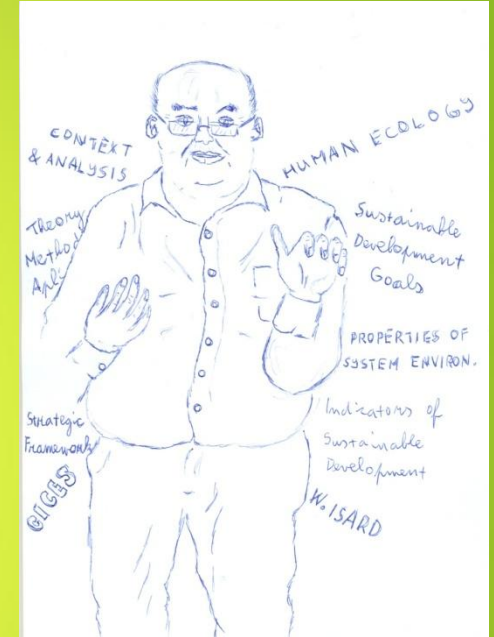 CONTEXT
& ANALYSIS
HUMAN ECOLOGY
Theory
Method
Apli
Sustainable
Development
Goals
PROPERTIES OF
SYSTEM ENVIRON.
Strategic
Framework
CICES
Indicators of
Sustainable
Development
W. ISARD